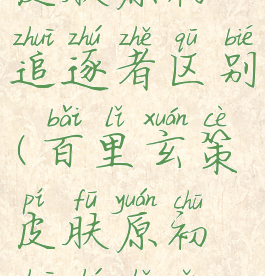 zhuī zhú zhě qū bié
追逐者区别
bǎi lǐ xuán cè
(百里玄策
pí fū yuán chū
皮肤原初